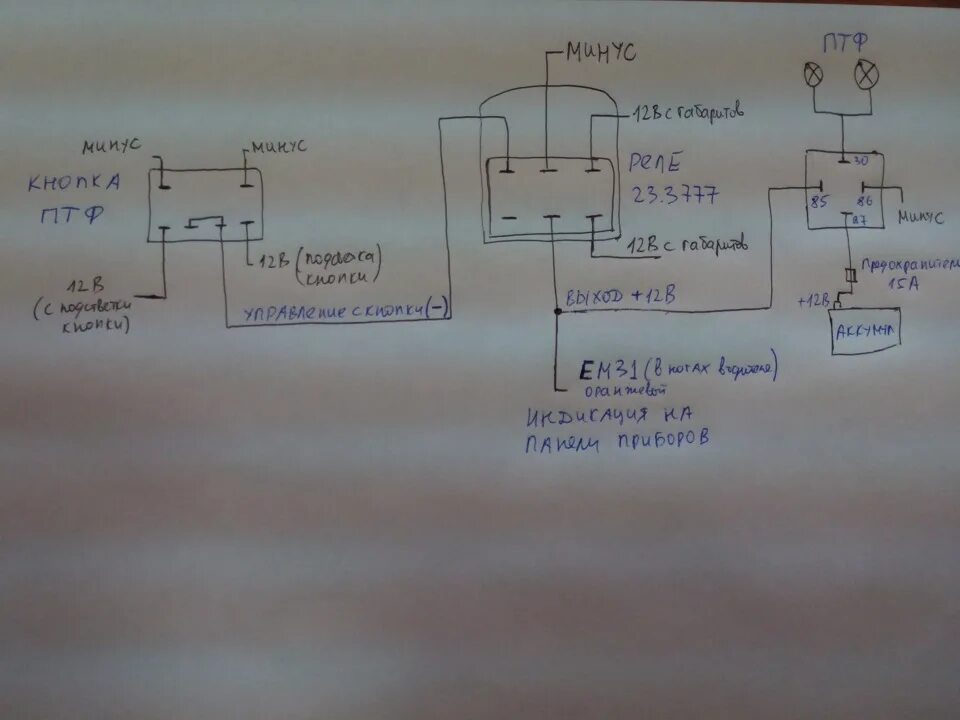 МИНУС
МИНУС
КНОПКА
ПТФ
12В
(с подсветки
кнопки)
12В (подсветка
кнопки)
УПРАВЛЕНИЕ С КНОПКИ (-)
МИНУС
12В с габаритов
РЕЛЕ
23.3777
12В с габаритов
ВЫХОД +12В
ЕМ31 (в ногах водителя)
оранжевой
ИНДИКАЦИЯ НА
ПАНЕЛИ ПРИБОРОВ
ПТФ
30
85
86
87
МИНУС
Предохранитель
15А
+12В
АККУМУЛ